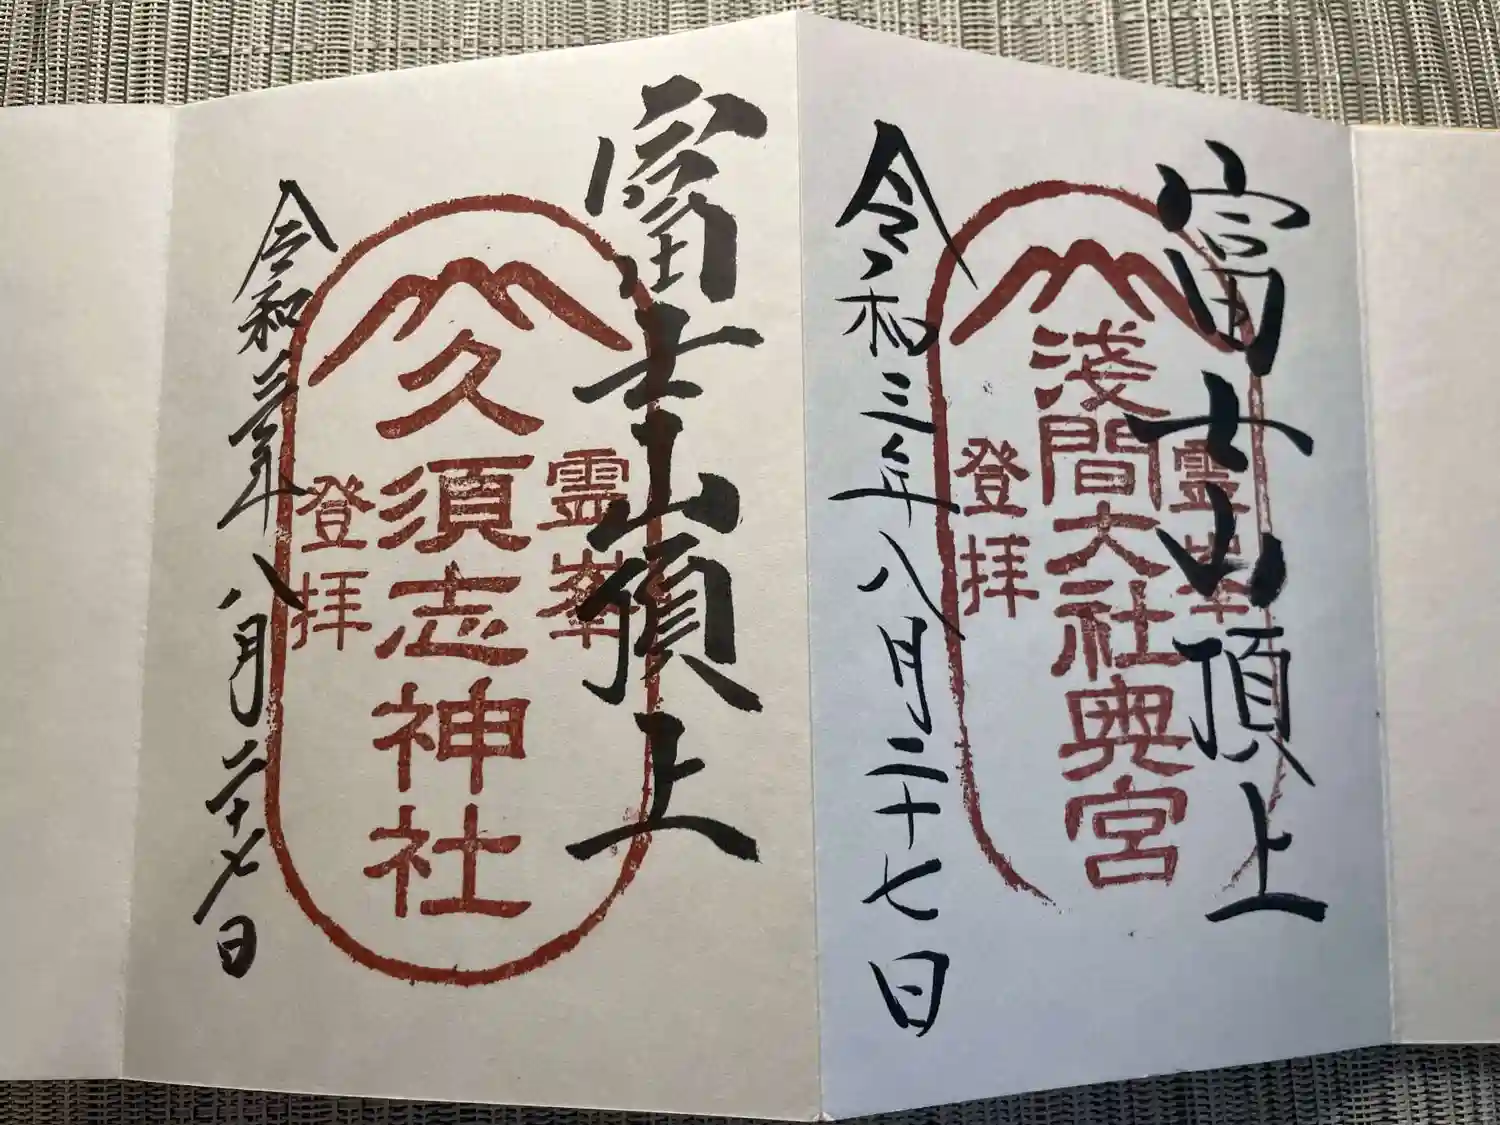 富士山頂上
霊峯
浅間大社奥宮
登拝
令和三年八月二十七日
富士山頂上
霊峯
久須志神社
登拝
令和三年八月二十七日